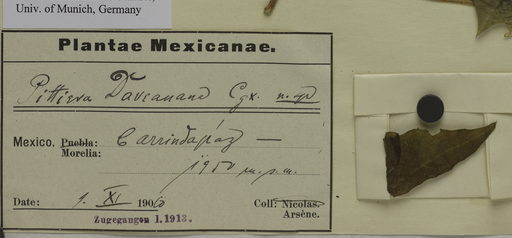 Univ. of Munich, Germany
Plantae Mexicanae.
Pittiera Daveanana Cgx. n. sp.
Mexico. Puebla: Carrindapáz —
Morelia:
1950 m. s. m.
Date: 9. XI 190
Coll: Nicolas.
Arsène.
Zugegangen 1.1913.